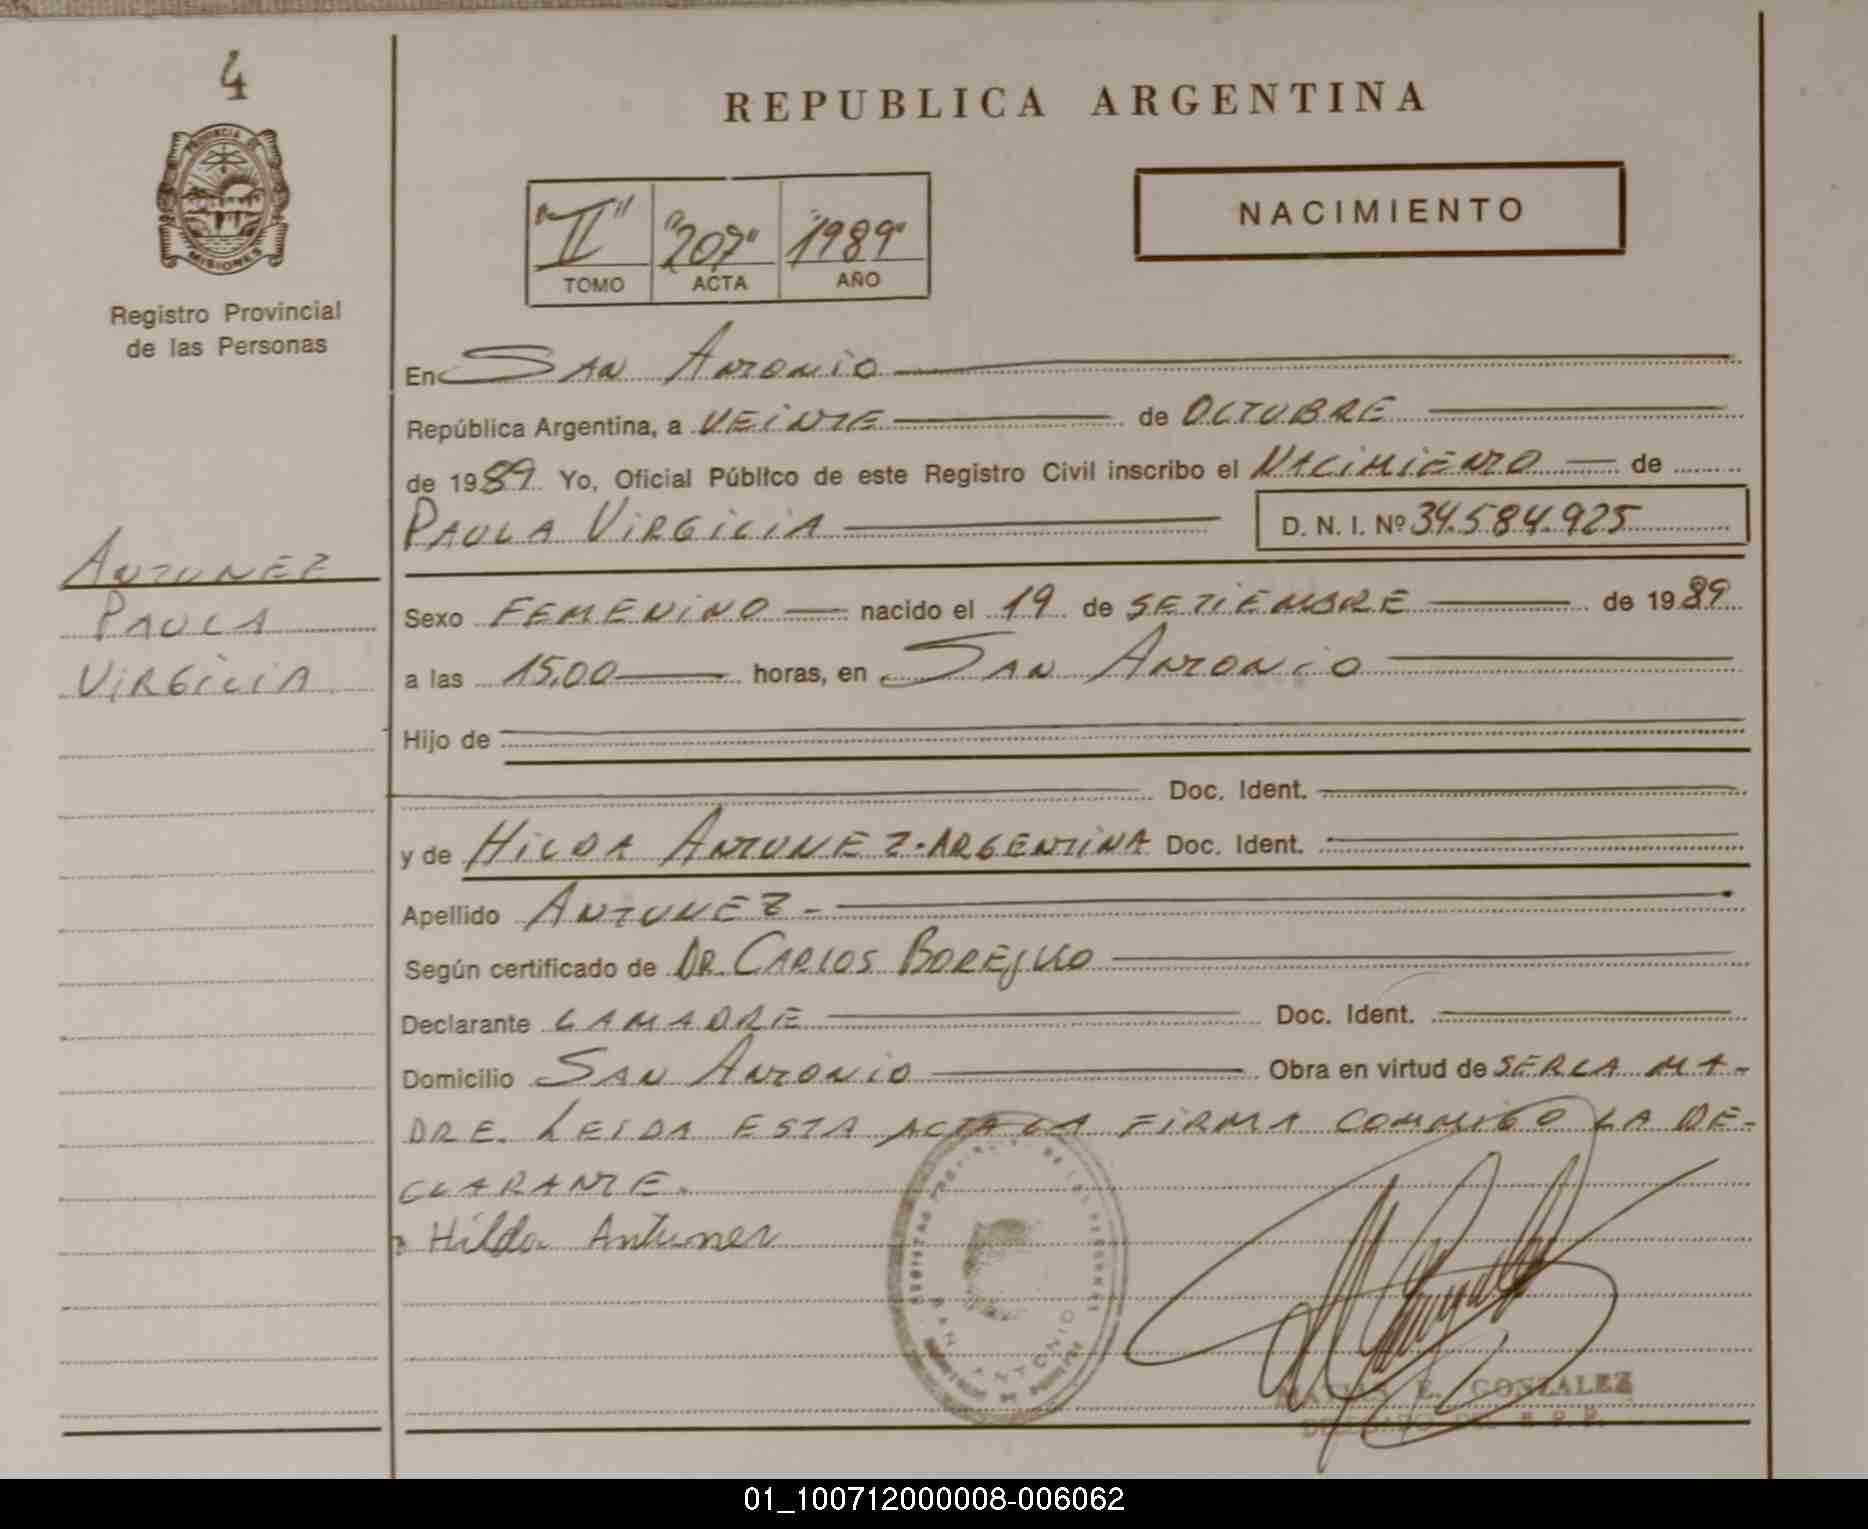 4
REPUBLICA ARGENTINA
PROVINCIA DE
MISIONES
Registro Provincial
de las Personas
"II" "207" "1989"
TOMO ACTA AÑO
NACIMIENTO
En San Antonio
República Argentina, a VEINTE de OCTUBRE
de 1989 Yo, Oficial Público de este Registro Civil inscribo el NACIMIENTO de
PAULA VIRGILIA D. N. I. Nº 34.584.925
ANTUNEZ
PAULA
VIRGILIA
Sexo FEMENINO nacido el 19 de SETIEMBRE de 1989
a las 15,00 horas, en SAN ANTONIO
Hijo de
Doc. Ident.
y de HILDA ANTUNEZ-ARGENTINA Doc. Ident.
Apellido ANTUNEZ-
Según certificado de DR. CARLOS
Declarante LA MADRE Doc. Ident.
Domicilio SAN ANTONIO Obra en virtud de SER LA MA-
DRE. LEIDA ESTA ACTA LA FIRMA CONMIGO LA DE-
CLARANTE.
Hilda Antunez
SAN ANTONIO
E. GONZALEZ
DELEGADO
01_100712000008-006062